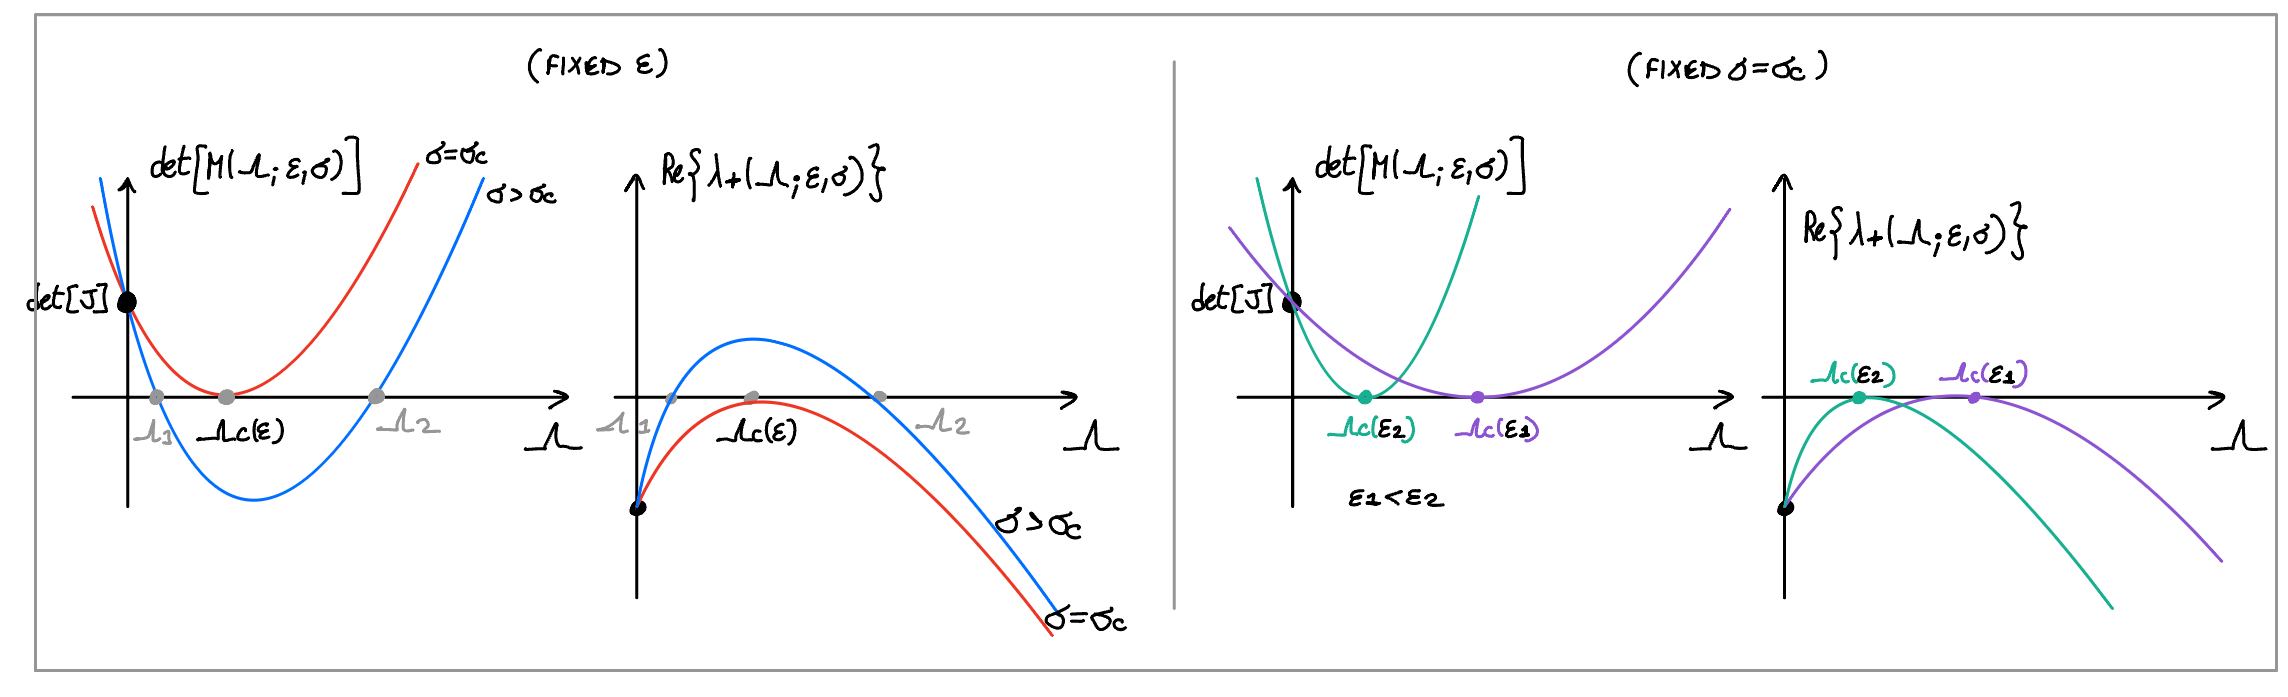 (FIXED ε)
det[M(Λ; ε, σ)]
σ=σc
σ>σc
det[J]
Λ1
Λc(ε)
Λ2
Λ
Re{λ+(Λ; ε, σ)}
Λ1
Λc(ε)
Λ2
Λ
σ>σc
σ=σc
(FIXED σ=σc)
det[M(Λ; ε, σ)]
det[J]
Λc(ε2)
Λc(ε1)
Λ
ε1<ε2
Re{λ+(Λ; ε, σ)}
Λc(ε2)
Λc(ε1)
Λ